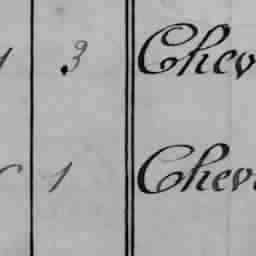 3 Chev
1 Chev